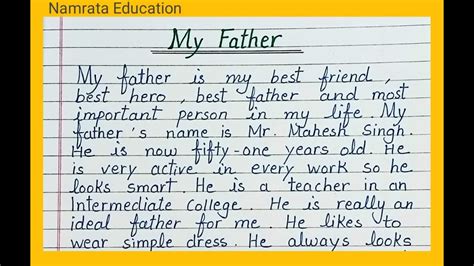 Namrata Education
My Father
My father is my best friend,
best hero, best father and most
important person in my life. My
father's name is Mr. Mahesh Singh.
He is now fifty-one years old. He
is very active in every work so he
looks smart. He is a teacher in an
Intermediate College. He is really an
ideal father for me. He likes to
wear simple dress. He always looks